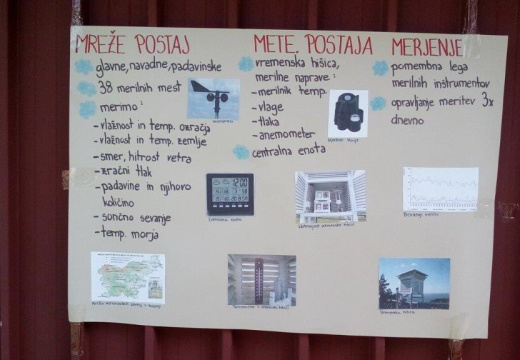 MREŽE POSTAJ
glavne, navadne, padavinske
38 merilnih mest
merimo:
- vlažnost in temp. ozračja
- vlažnost in temp. zemlje
- smer, hitrost vetra
- zračni tlak
- padavine in njihovo
količino
- sončno sevanje
- temp. morja
METE. POSTAJA
vremenska hišica,
merilne naprave:
- merilnik temp.
- vlage
- tlaka
- anemometer
centralna enota
MERJENJE
pomembna lega
merilnih instrumentov
opravljanje meritev 3x
dnevno
12:00